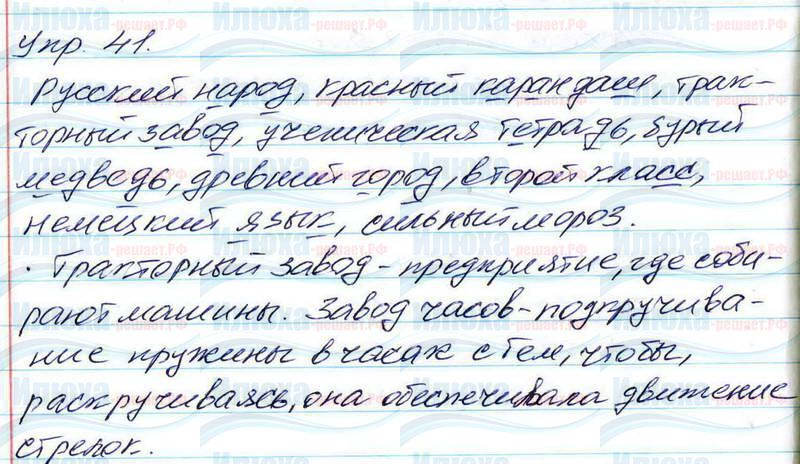 Упр. 41.
Русский народ, красный карандаш, трак-
торный завод, ученическая тетрадь, бурый
медведь, древний город, второй класс,
немецкий язык, сильный мороз.
Тракторный завод - предприятие, где соби-
рают машины. Завод часов - подкручива-
ние пружины в часах с тем, чтобы,
раскручиваясь, она обеспечивала движение
стрелок.